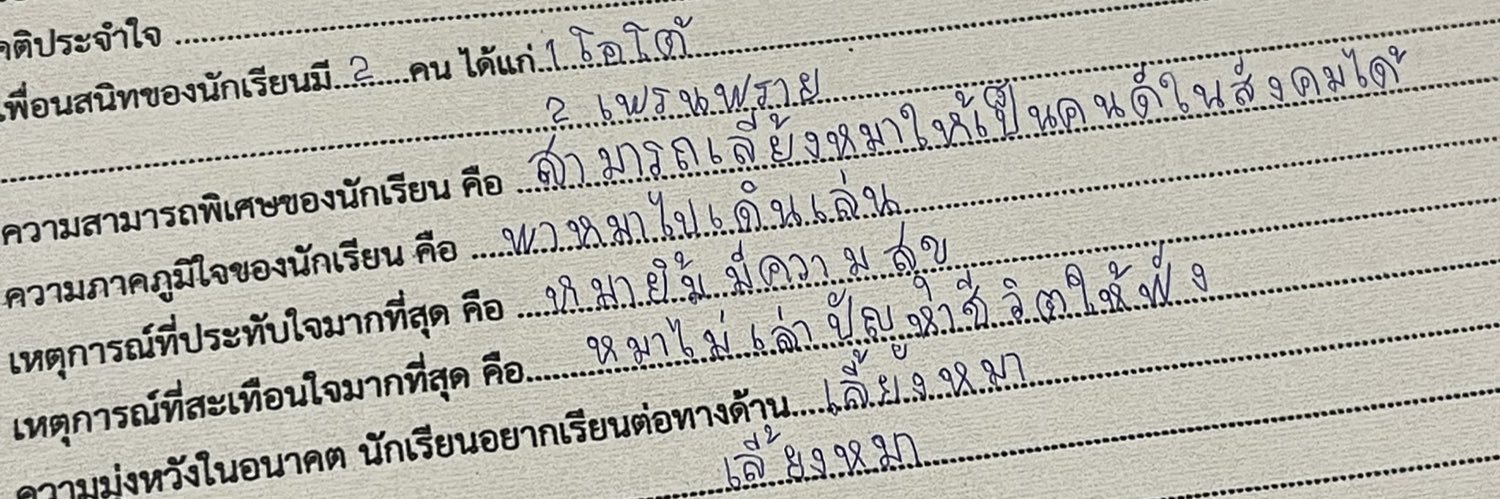 คติประจำใจ
เพื่อนสนิทของนักเรียนมี 2 คน ได้แก่ 1 โอโต้
2 เพรนพราย
ความสามารถพิเศษของนักเรียน คือ สามารถเลี้ยงหมาให้เป็นคนดีในสังคมได้
ความภาคภูมิใจของนักเรียน คือ พาหมาไปเดินเล่น
เหตุการณ์ที่ประทับใจมากที่สุด คือ หมายิ้มมีความสุข
เหตุการณ์ที่สะเทือนใจมากที่สุด คือ หมาไม่เล่าปัญหาชีวิตให้ฟัง
ความมุ่งหวังในอนาคต นักเรียนอยากเรียนต่อทางด้าน เลี้ยงหมา
เลี้ยงหมา